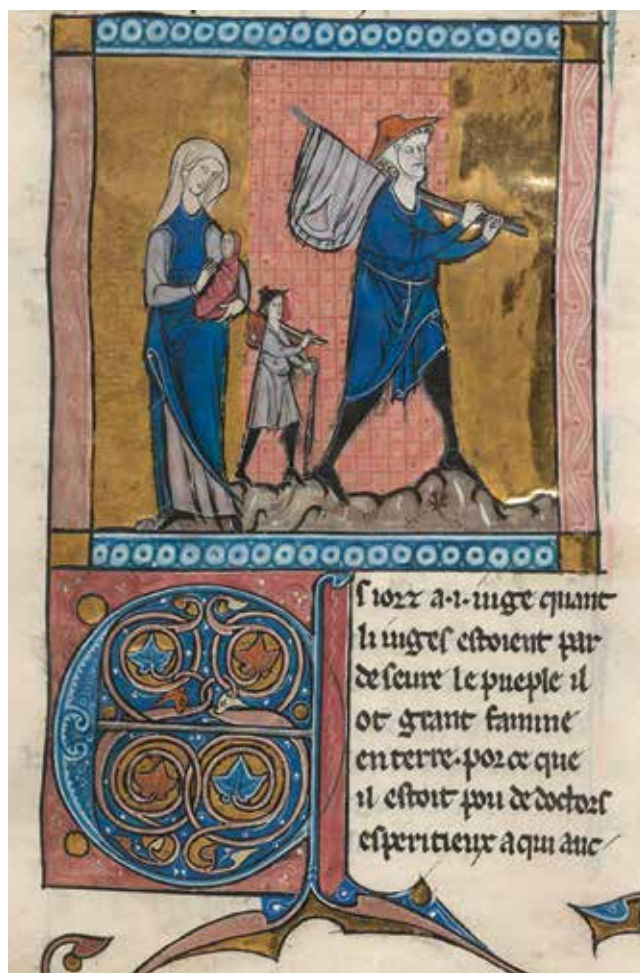 Es iorz a·i·iuge quant
li iuges estoient par
deseure le pueple il
ot grant famine
en terre·por ce que
il estoit pou de doctors
esperitieux a qui auc